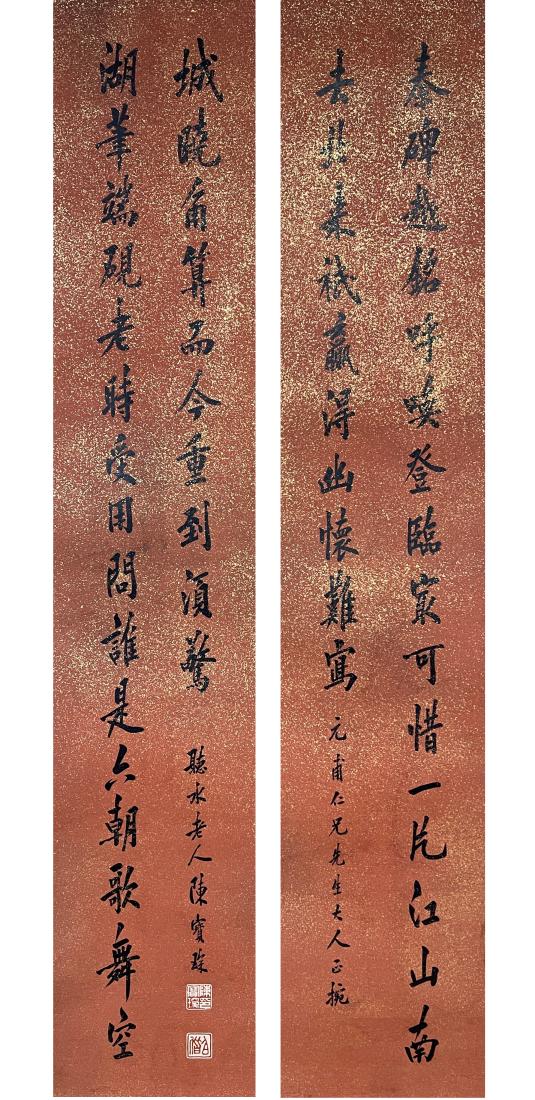 秦碑越銘呼喚登臨最可惜一片江山南
去北來祇贏得幽懷難寫
元甫仁兄先生大人正捥
湖筆端硯老時受用問誰是六朝歌舞空
城曉角算而今重到須驚
聽水老人陳寶琛